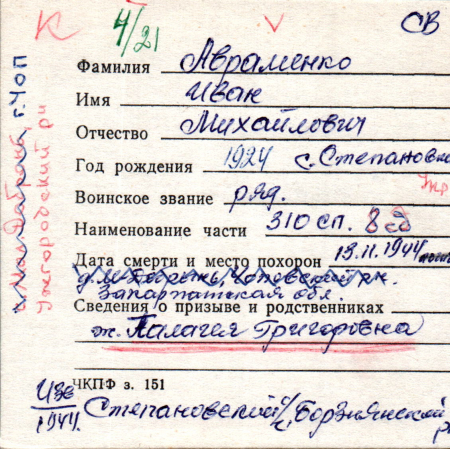 К 4/21 СВ
Фамилия Авраменко
Имя Иван
Отчество Михайлович
Год рождения 1924 с. Степановк
Воинское звание ряд.
Наименование части 310 сп. 8 сд
Дата смерти и место похорон 13.11.1944
Закарпатская обл.
Сведения о призыве и родственниках
ж. Палагея Григоровна
ЧКПФ з. 151
1944. Степановский с/с, Борзнянский
г. Чоп
Ужгородский рн